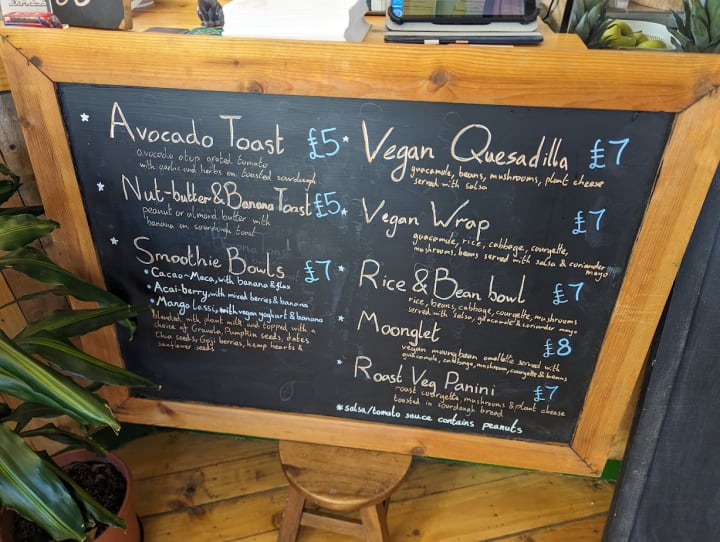 Avocado Toast £5
avocado atop grated tomato
with garlic and herbs on toasted sourdough
Nut-butter & Banana Toast £5
peanut or almond butter with
banana on sourdough toast
Smoothie Bowls £7
• Cacao-Maca, with banana & flax
• Acai-berry, with mixed berries & banana
• Mango Lassi, with vegan yoghurt & banana
blended with plant milk and topped with a
choice of Granola, Pumpkin seeds, dates
Chia seeds, Goji berries, hemp hearts &
sunflower seeds
Vegan Quesadilla £7
guacamole, beans, mushrooms, plant cheese
served with salsa
Vegan Wrap £7
guacamole, rice, cabbage, courgette,
mushrooms, beans served with salsa & coriander
mayo
Rice & Bean bowl £7
rice, beans, cabbage, courgette, mushrooms
served with salsa, guacamole & coriander mayo
Moonglet £8
vegan moung bean omellete served with
guacamole, cabbage, mushroom, courgette & beans
Roast Veg Panini £7
roast courgette, mushrooms & plant cheese
toasted in sourdough bread
* salsa/tomato sauce contains peanuts